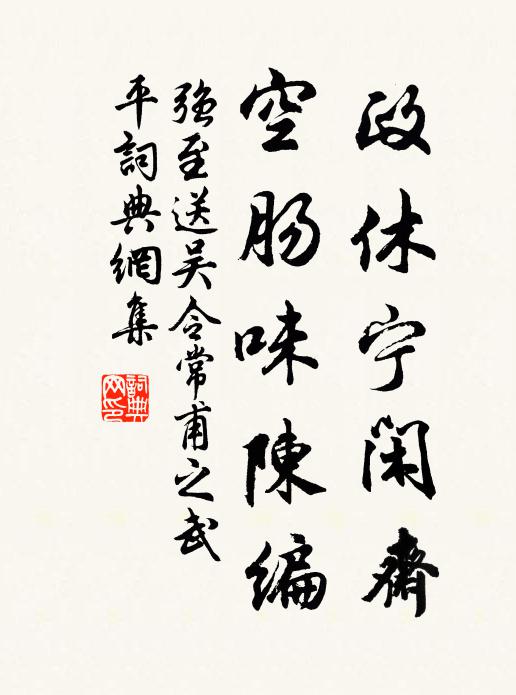 政休宁闲齋
空肠味陳编
強至送吴令常甫之武
平詞典網集
詞典
网印